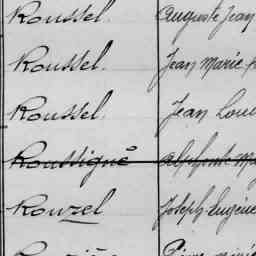 Roussel. Auguste Jean
Roussel. Jean Marie
Roussel. Jean Loui
Roussigné Alphonse M
Rouzel Joseph Eugène